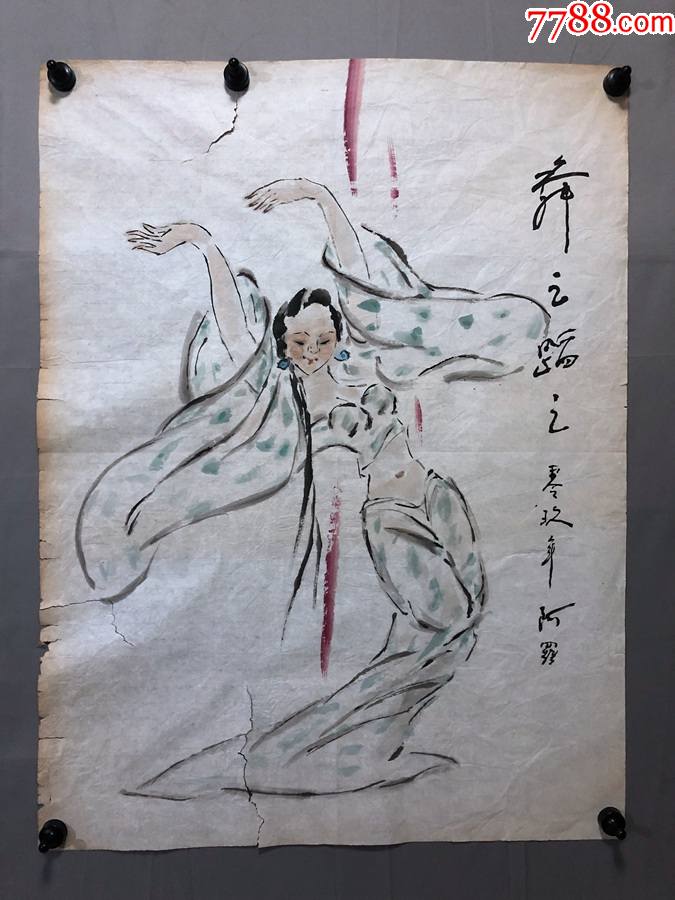 7788.com
舞之蹈之 零玖年 阿羅